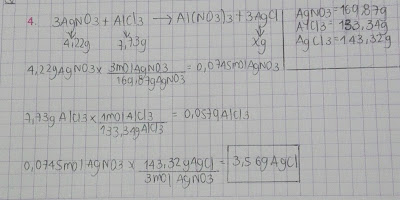 4. 3AgNO3 + AlCl3 → Al(NO3)3 + 3AgCl
4,22g 7,73g xg
AgNO3 = 169,87g
AlCl3 = 133,34g
AgCl3 = 143,32g
4,22g AgNO3 x 3mol AgNO3 / 169,87g AgNO3 = 0,0745mol AgNO3
7,73g AlCl3 x 1mol AlCl3 / 133,34g AlCl3 = 0,0579 AlCl3
0,0745mol AgNO3 x 143,32g AgCl / 3mol AgNO3 = 3,56g AgCl